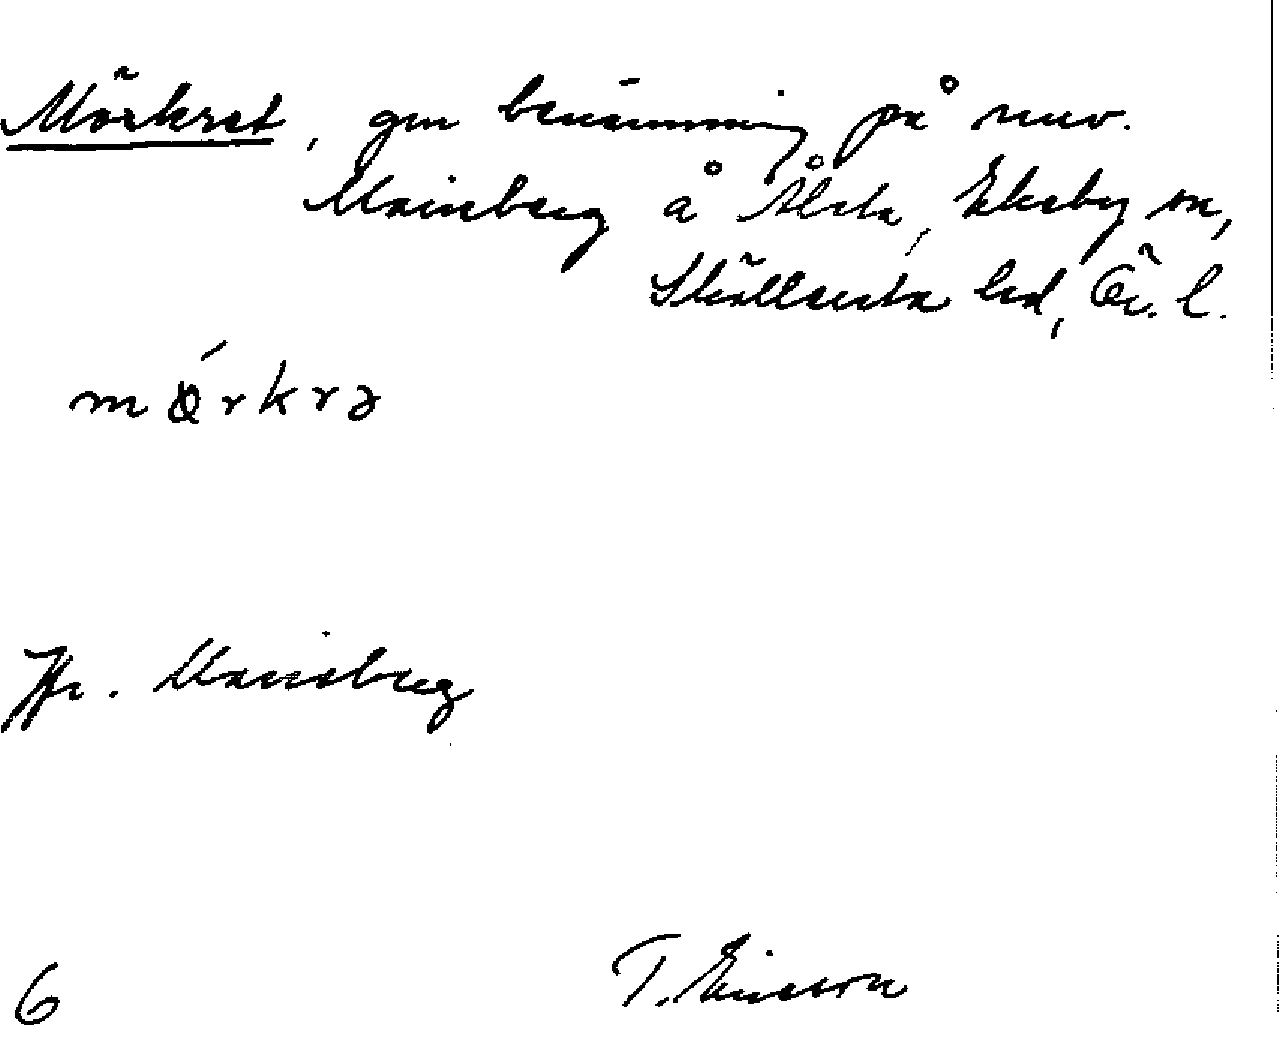 Mörkret, gm benämning på nuv.
Marieberg å Ålsta, Ekeby sn,
Sköllersta hd, Ör. l.
mörkrə
Jfr. Marieberg
6 T. Ericsson